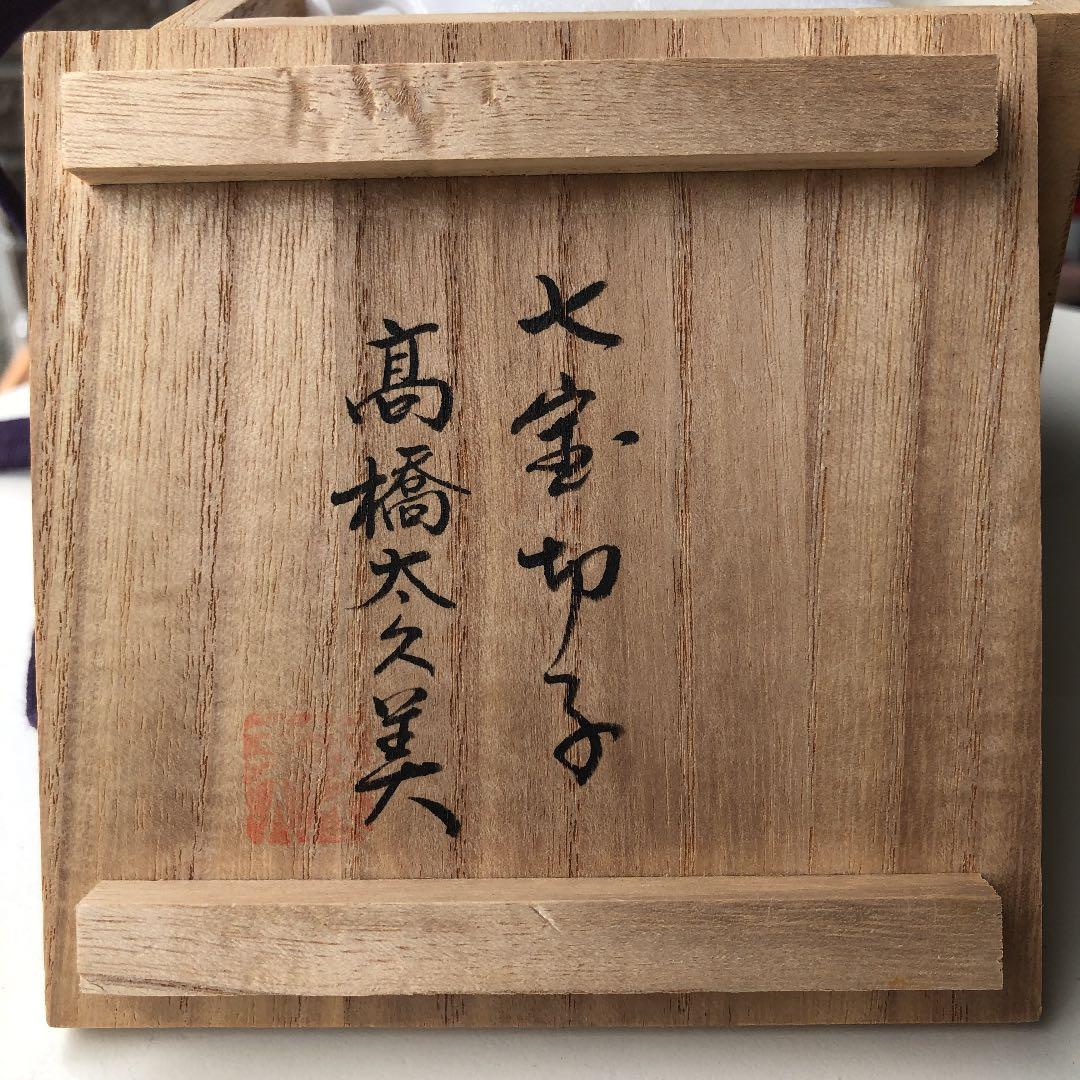 七宝切子
髙橋太久美